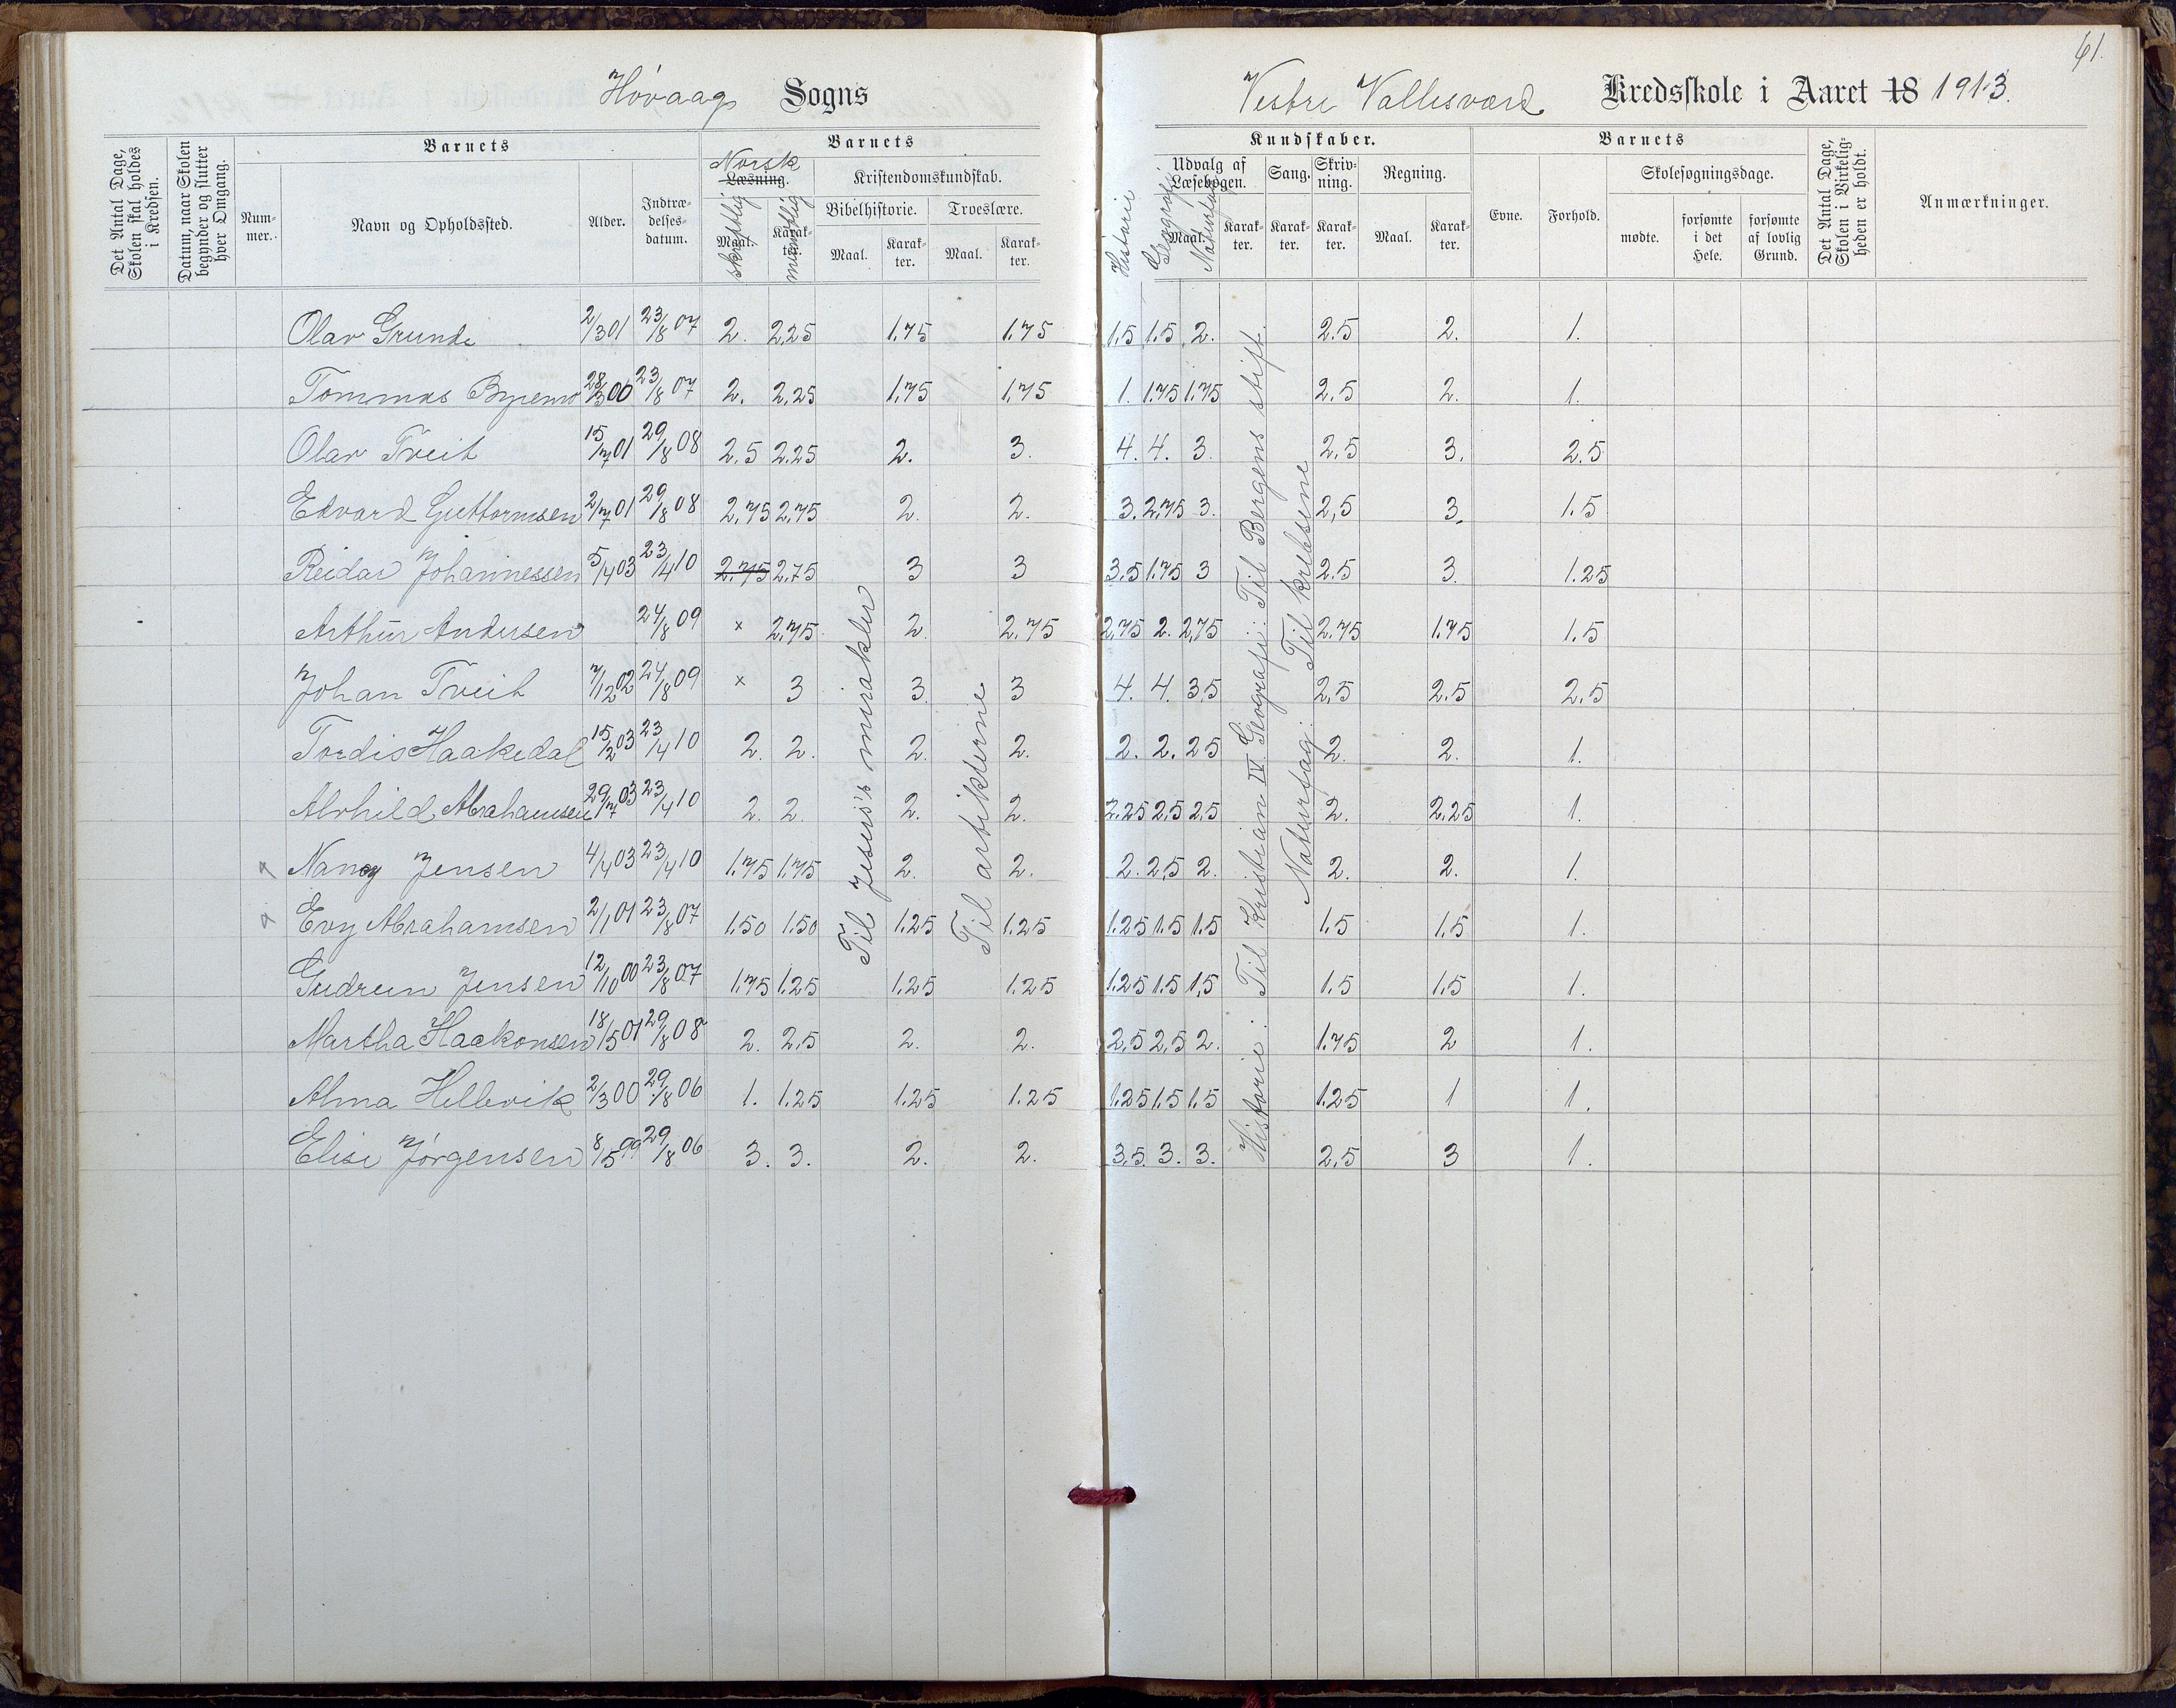 61.
Høvaag Sogns
Vestre Vallesværd Kredsskole i Aaret 18 1913.
Det Antal Dage, Skolen skal holdes i Kredsen.
Datum, naar Skolen begynder og slutter hver Omgang.
Barnets
Num-mer.
Navn og Opholdssted.
Alder.
Indtræ-delses-datum.
Barnets
Norsk
Læsning.
Maal. skriftlig
Karak-ter. mundtlig
Kristendomskundskab.
Bibelhistorie.
Maal.
Karak-ter.
Troeslære.
Maal.
Karak-ter.
Kundskaber.
Udvalg af Læsebogen.
Historie
Geografi
Maal.
Naturfag
Karak-ter.
Sang.
Karak-ter.
Skriv-ning.
Karak-ter.
Regning.
Maal.
Karak-ter.
Barnets
Evne.
Forhold.
Skolesøgningsdage.
mødte.
forsømte i det Hele.
forsømte af lovlig Grund.
Det Antal Dage, Skolen i Virkelig-heden er holdt.
Anmærkninger.
Olav Grunde 2/3 01 23/8 07 2. 2,25 1.75 1.75 1.5 1.5 2. 2.5 2. 1.
Tommas 28/3 00 23/8 07 2. 2,25 1.75 1.75 1. 1.75 1.75 2.5 2. 1.
Olav Tveit 15/7 01 29/8 08 2,5 2.25 2. 3. 4. 4. 3. 2,5 3. 2.5
Edvard Guttormsen 2/7 01 29/8 08 2,75 2,75 2. 2. 3. 2,75 3. 2,5 3. 1.5
Reidar Johannessen 5/4 03 23/4 10 2.75 2,75 3 3 3.5 1.75 3 2.5 3. 1.25
Arthur Andersen 24/8 09 × 2,75 2. 2.75 2,75 2. 2,75 2.75 1.75 1.5
Johan Tveit 7/12 02 24/8 09 × 3 3. 3 4. 4. 3,5 2,5 2.5 2.5
Tordis Haakedal 15/2 03 23/4 10 2. 2. 2. 2. 2. 2. 2.5 2. 2. 1.
Alvhild Abrahamsen 29/7 03 23/4 10 2. 2. 2. 2. 2.25 2,5 2,5 2. 2,25 1.
Nancy Jensen 4/4 03 23/4 10 1.75 1.75 2. 2. 2. 2,5 2. 2. 2. 1.
Evy Abrahamsen 2/1 01 23/8 07 1.50 1.50 1.25 1.25 1.25 1.5 1.5 1.5 1.5 1.
Gudrun Jensen 12/10 00 23/8 07 1.75 1.25 1.25 1.25 1.25 1.5 1,5 1.5 1.5 1.
Martha Haakonsen 18/5 01 29/8 08 2. 2,5 2. 2. 2,5 2,5 2. 1.75 2 1.
Alma Hellevik 2/3 00 29/8 06 1. 1.25 1.25 1.25 1.25 1.5 1.5 1.25 1 1.
Elise Jørgensen 8/5 99 29/8 06 3. 3. 2. 2. 3,5. 3. 3. 2,5 3 1.
Til Jesus's mirakler
Til artiklerne
Historie: Til Kristian IV. Geografi: Til Bergens stift.
Naturfag: Til krebsene